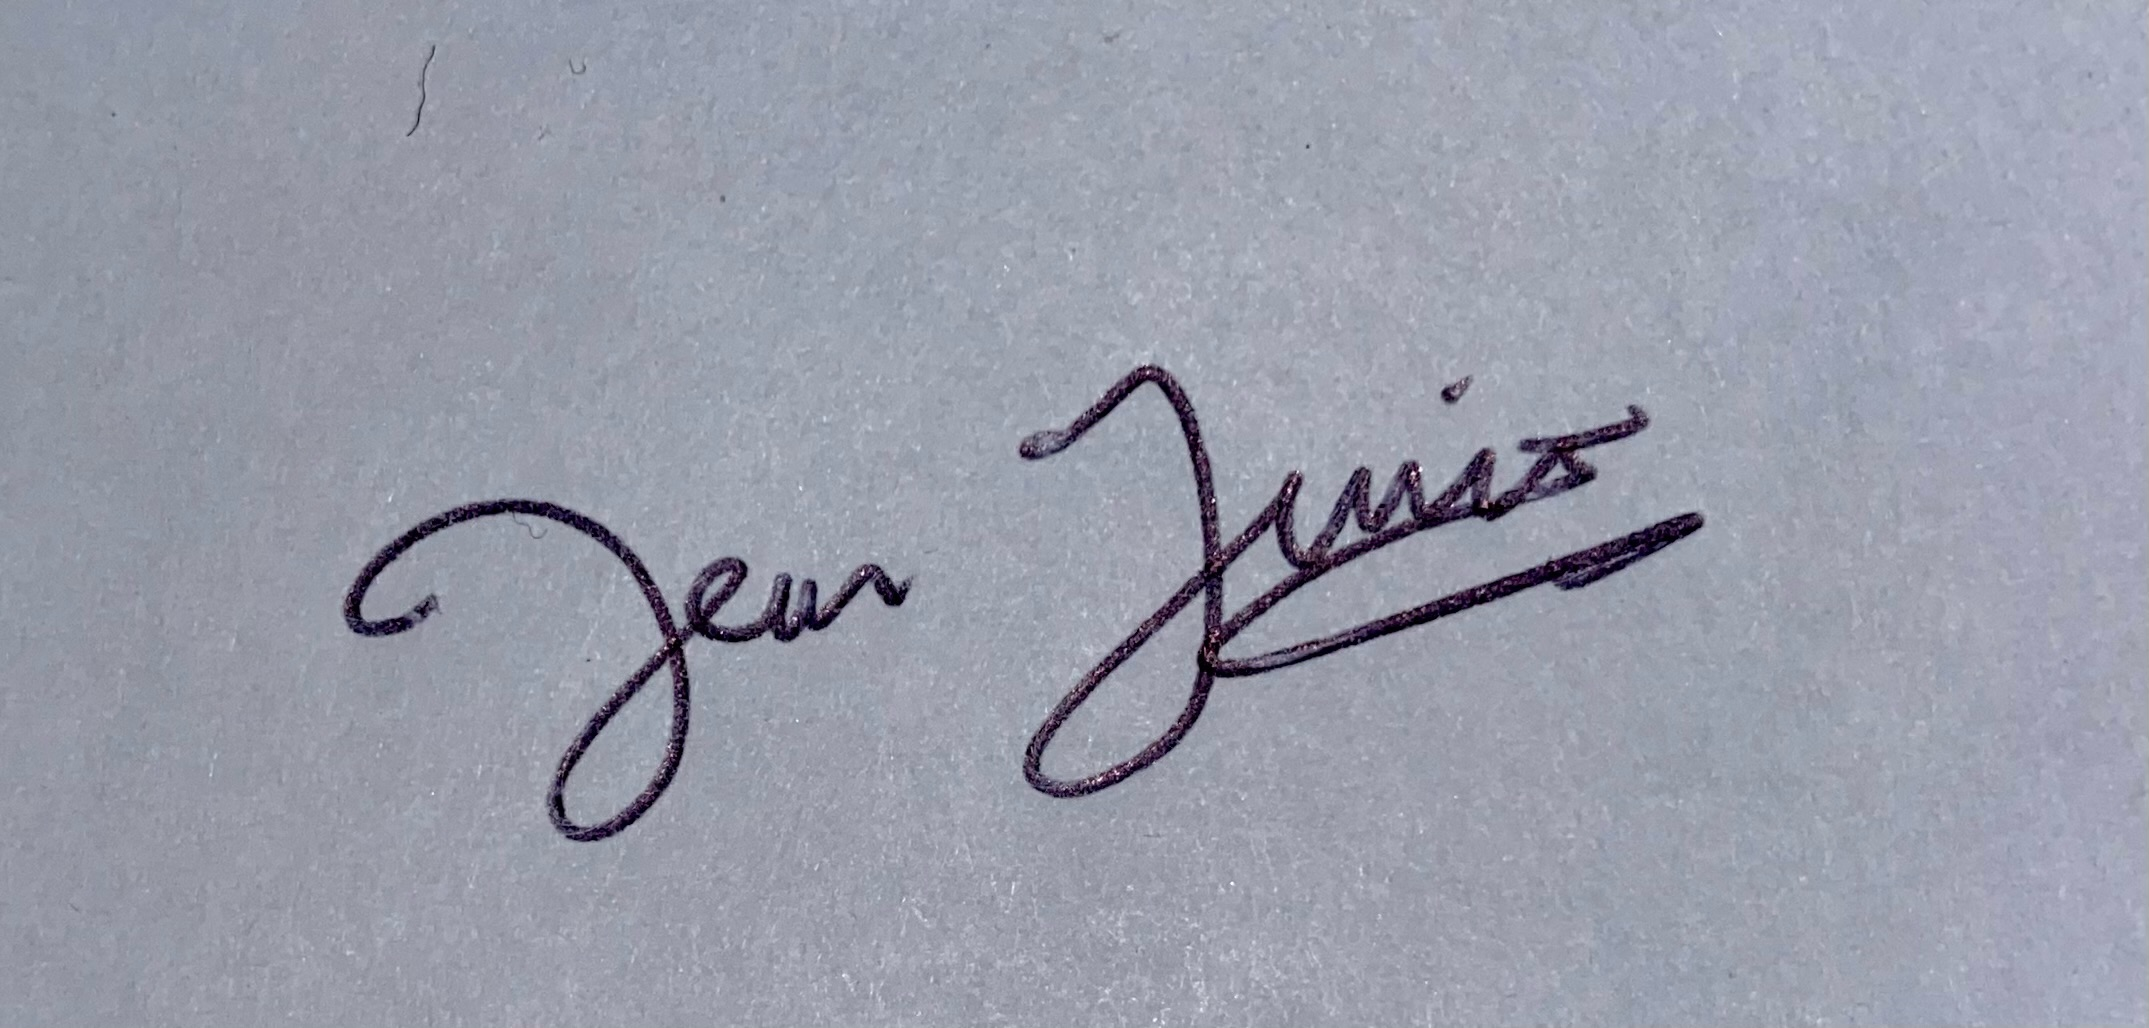 Jean Junio